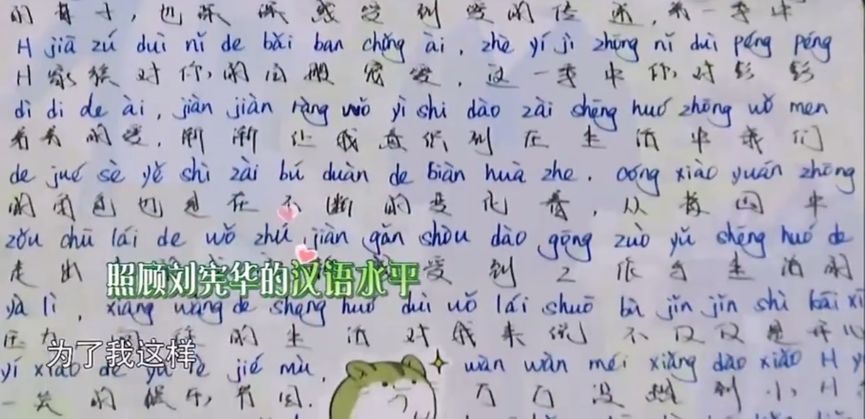 的骨子，也深深感受到爱的传递，第一季中
H jiā zú duì nǐ de bǎi ban chǒng ài，zhè yí jì zhōng nǐ duì péng péng
H家族对你的百般宠爱，这一季中你对彭彭
dì di de ài，jiàn jiàn ràng wǒ yì shi dào zài shēng huó zhōng wǒ men
弟弟的爱，渐渐让我意识到在生活中我们
de jué sè yě shì zài bú duàn de biàn huà zhe．cóng xiào yuán zhōng
的角色也是在不断的变化着，从校园中
zǒu chū lái de wǒ zhú jiàn gǎn shòu dào gōng zuò yǔ shēng huó de
走出受到工作与生活的
照顾刘宪华的汉语水平
yà lì，xiàng wǎng de shēng huó duì wǒ lái shuō bù jǐn jǐn shì kāi xī
压力的生活对我来说不仅仅是开心
为了我这样
yí xiào de yú lè jié mù，wàn wàn méi xiǎng dào xiǎo H y
一笑的娱乐节目．万万没想到小H